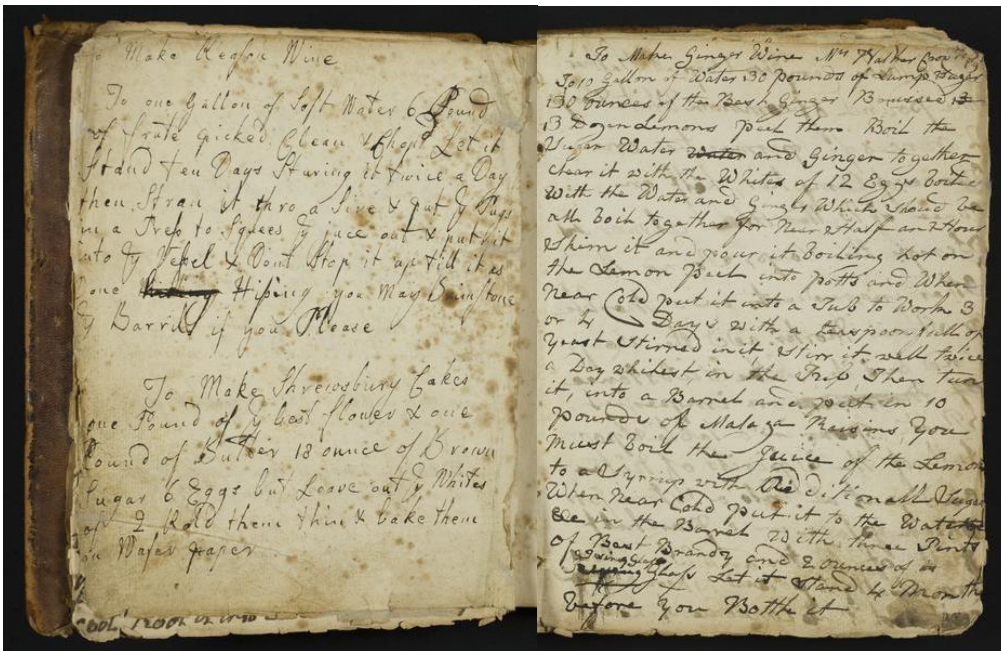 To Make Reason Wine
To one Gallon of Soft Water 6 Pound
of frute picked Clean & Chopt Let it
Stand ten Days Sturing it twice a Day
then Stran it thro a Sive & put ye Pugs
in a Press to Squees ye juce out & put it
into ye Vesel & Dont Stop it up till it as
done Hising you May Brimstone
ye Barrill if you Please
To Make Shrewsbury Cakes
one Pound of ye best flower & one
Pound of Butter 12 ounce of Brown
Sugar 6 Eggs but Leave out ye Whites
of 2 Rold them thin & bake them
on Wafer paper
To Make Ginger Wine Mrs
To 10 Gallon of Water 30 pounds of Lump Sugar
130 ounces of the Best Ginger Brussed
13 Dozn Lemons peel them Boil the
Sugar Water water and Ginger together
clear it with the Whites of 12 Eggs boild
With the Water and Ginger Which should be
all boil together for Near Half an Hour
Skim it and pour it boiling hot on
the Lemon Peel into potts and When
Near Cold put it into a Tub to Work 3
or 4 Days with a teaspoon full of
yeast Stirred in it, Stirr it well twice
a Day whilest in the Tub, Then tun
it, into a Barrel and put in 10
pounds of Malaga Raisons, You
must boil the Juice of the Lemon
to a Syrrup with Additionall Sugar
When Near Cold put it to the Water
&c in the Barrel With three Pints
of Best Brandy and 2 ounces of is
Glass Let it Stand 4 Months
before you Bottle it